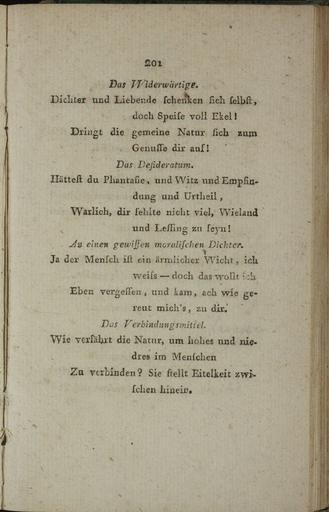 201
Das Widerwärtige.
Dichter und Liebende ſchenken ſich ſelbſt,
doch Speiſe voll Ekel!
Dringt die gemeine Natur ſich zum
Genuſſe dir auf!
Das Deſideratum.
Hätteſt du Phantaſie, und Witz und Empfin-
dung und Urtheil,
Warlich, dir fehlte nicht viel, Wieland
und Leſſing zu ſeyn!
An einen gewiſſen moraliſchen Dichter.
Ja der Menſch iſt ein ärmlicher Wicht, ich
weiſs — doch das wollt ich
Eben vergeſſen, und kam, ach wie ge-
reut mich's, zu dir.
Das Verbindungsmittel.
Wie verfährt die Natur, um hohes und nie-
dres im Menſchen
Zu verbinden? Sie ſtellt Eitelkeit zwi-
ſchen hinein.